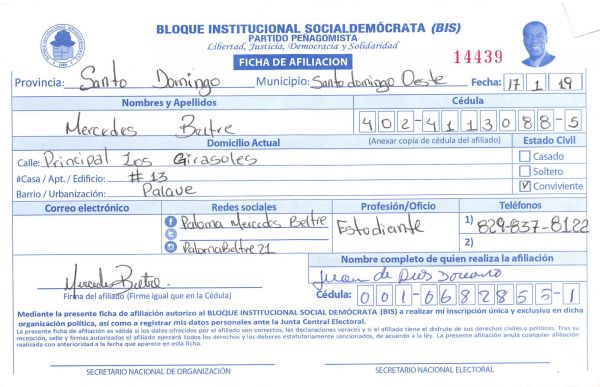 BLOQUE INSTITUCIONAL SOCIALDEMÓCRATA (BIS)
PARTIDO PEÑAGOMISTA
Libertad, Justicia, Democracia y Solidaridad
FICHA DE AFILIACION
14439
Provincia: Santo Domingo Municipio: Santo domingo Oeste Fecha: 17 1 19
Nombres y Apellidos Cédula
Mercedes Beltre 402-4113088-5
Domicilio Actual (Anexar copia de cédula del afiliado) Estado Civil
Calle: Principal Los Girasoles Casado
#Casa / Apt. / Edificio: #13 Soltero
Barrio / Urbanización: Palave Conviviente
Correo electrónico Redes sociales Profesión/Oficio Teléfonos
Paloma Mercedes Beltre Estudiante 1) 829-837-8122
PalomaBeltre21 2)
Nombre completo de quien realiza la afiliación
Mercedes Beltre Juan de Dios
Firma del afiliado (Firme igual que en la Cédula) Cédula: 001-0682855-1
Mediante la presente ficha de afiliación autorizo al BLOQUE INSTITUCIONAL SOCIAL DEMÓCRATA (BIS) a realizar mi inscripción única y exclusiva en dicha
organización política, así como a registrar mis datos personales ante la Junta Central Electoral.
La presente ficha de afiliación será válida si los datos ofrecidos por el afiliado son correctos, las declaraciones veraces y si el afiliado tiene el disfrute de sus derechos civiles y políticos. Tras su
recepción, sello y firmas autorizadas el afiliado ejercerá todos los derechos y los deberes estatutariamente sancionados, de acuerdo a la ley. La presente afiliación anula cualquier afiliación
realizada con anterioridad a la fecha que aparece en esta ficha.
SECRETARIO NACIONAL DE ORGANIZACIÓN SECRETARIO NACIONAL ELECTORAL